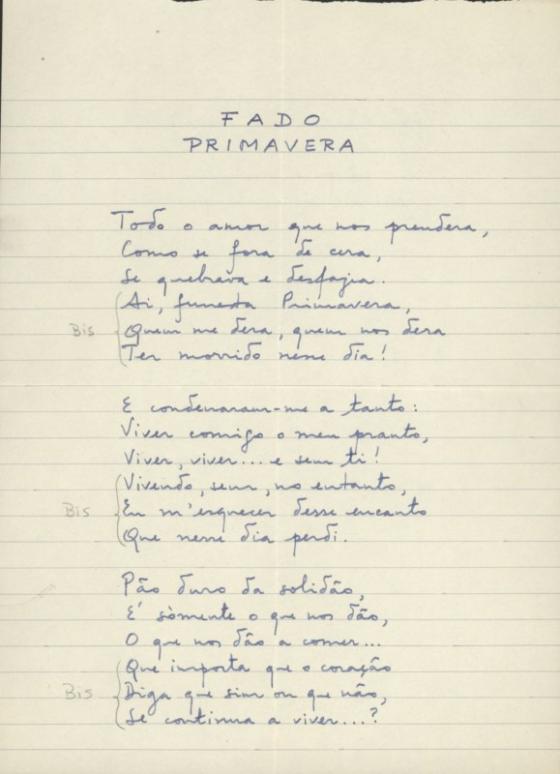 FADO
PRIMAVERA
Todo o amor que nos prendera,
Como se fora de cera,
Se quebrava e desfazia.
Ai, funesta Primavera,
Bis
Quem me dera, quem nos dera
Ter morrido nesse dia!
E condenaram-me a tanto:
Viver comigo o meu pranto,
Viver, viver... e sem ti!
Vivendo, sem, no entanto,
Bis
Eu m'esquecer desse encanto
Que nesse dia perdi.
Pão duro da solidão,
E' sòmente o que nos dão,
O que nos dão a comer...
Que importa que o coração
Bis
Diga que sim ou que não,
Se continua a viver...?